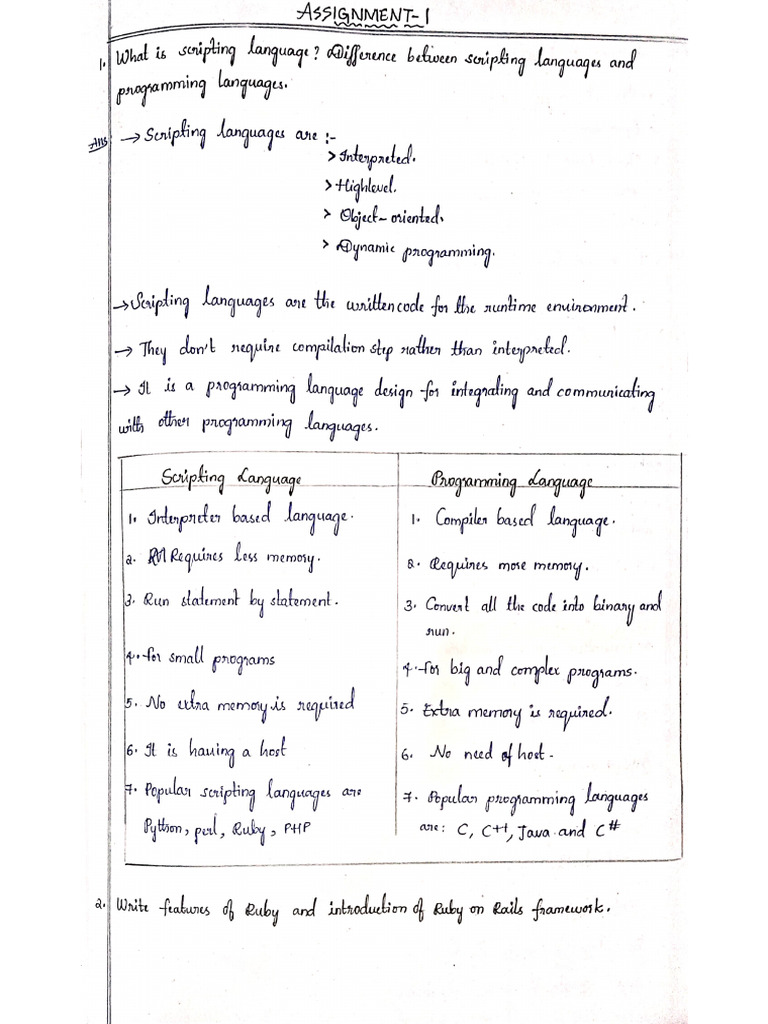 ASSIGNMENT-1
1. What is scripting language? Difference between scripting languages and
programming languages.
Ans → Scripting languages are :-
> Interpreted.
> Highlevel.
> Object-oriented.
> Dynamic programming.
→ Scripting languages are the written code for the runtime environment.
→ They don't require compilation step rather than interpreted.
→ It is a programming language design for integrating and communicating
with other programming languages.
Scripting Language
Programming Language
1. Interpreter based language.
1. Compiler based language.
2. Requires less memory.
2. Requires more memory.
3. Run statement by statement.
3. Convert all the code into binary and
run.
4. for small programs
4. for big and complex programs.
5. No extra memory is required
5. Extra memory is required.
6. It is having a host
6. No need of host.
7. Popular scripting languages are
Python, perl, Ruby, PHP
7. Popular programming languages
are: C, C++, Java and C#
2. Write features of Ruby and introduction of Ruby on Rails framework.